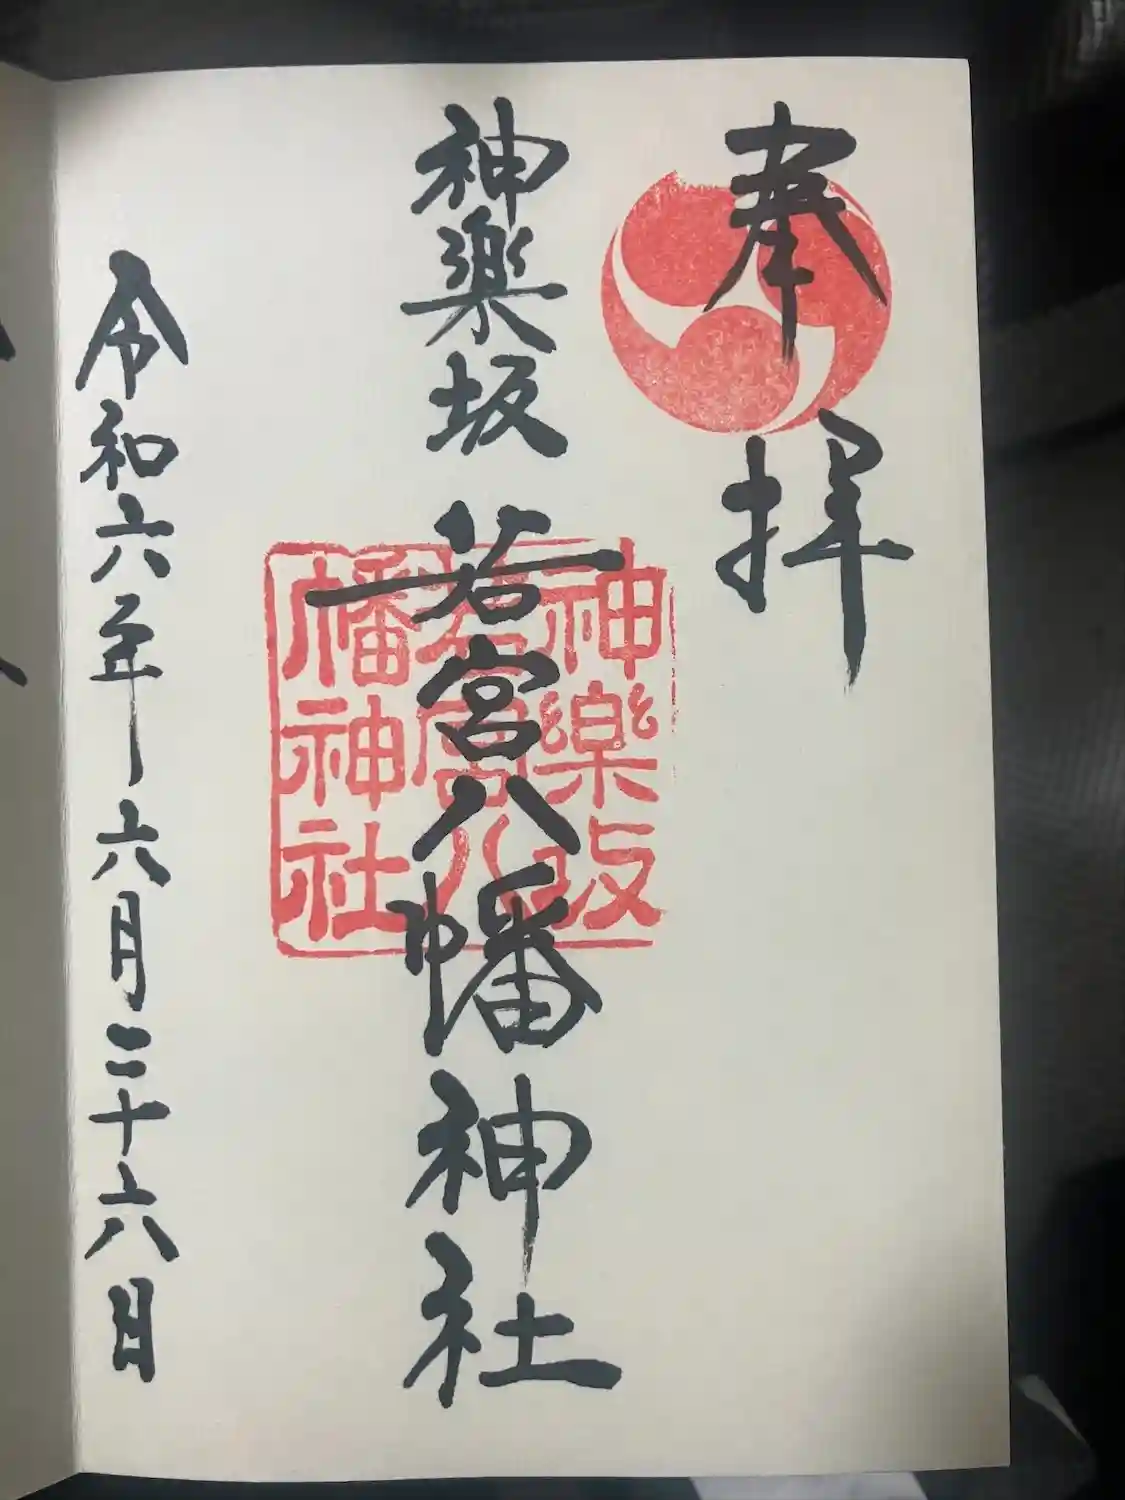 奉拝
神楽坂 若宮八幡神社
神楽坂
若宮八
幡神社
令和六年六月二十六日